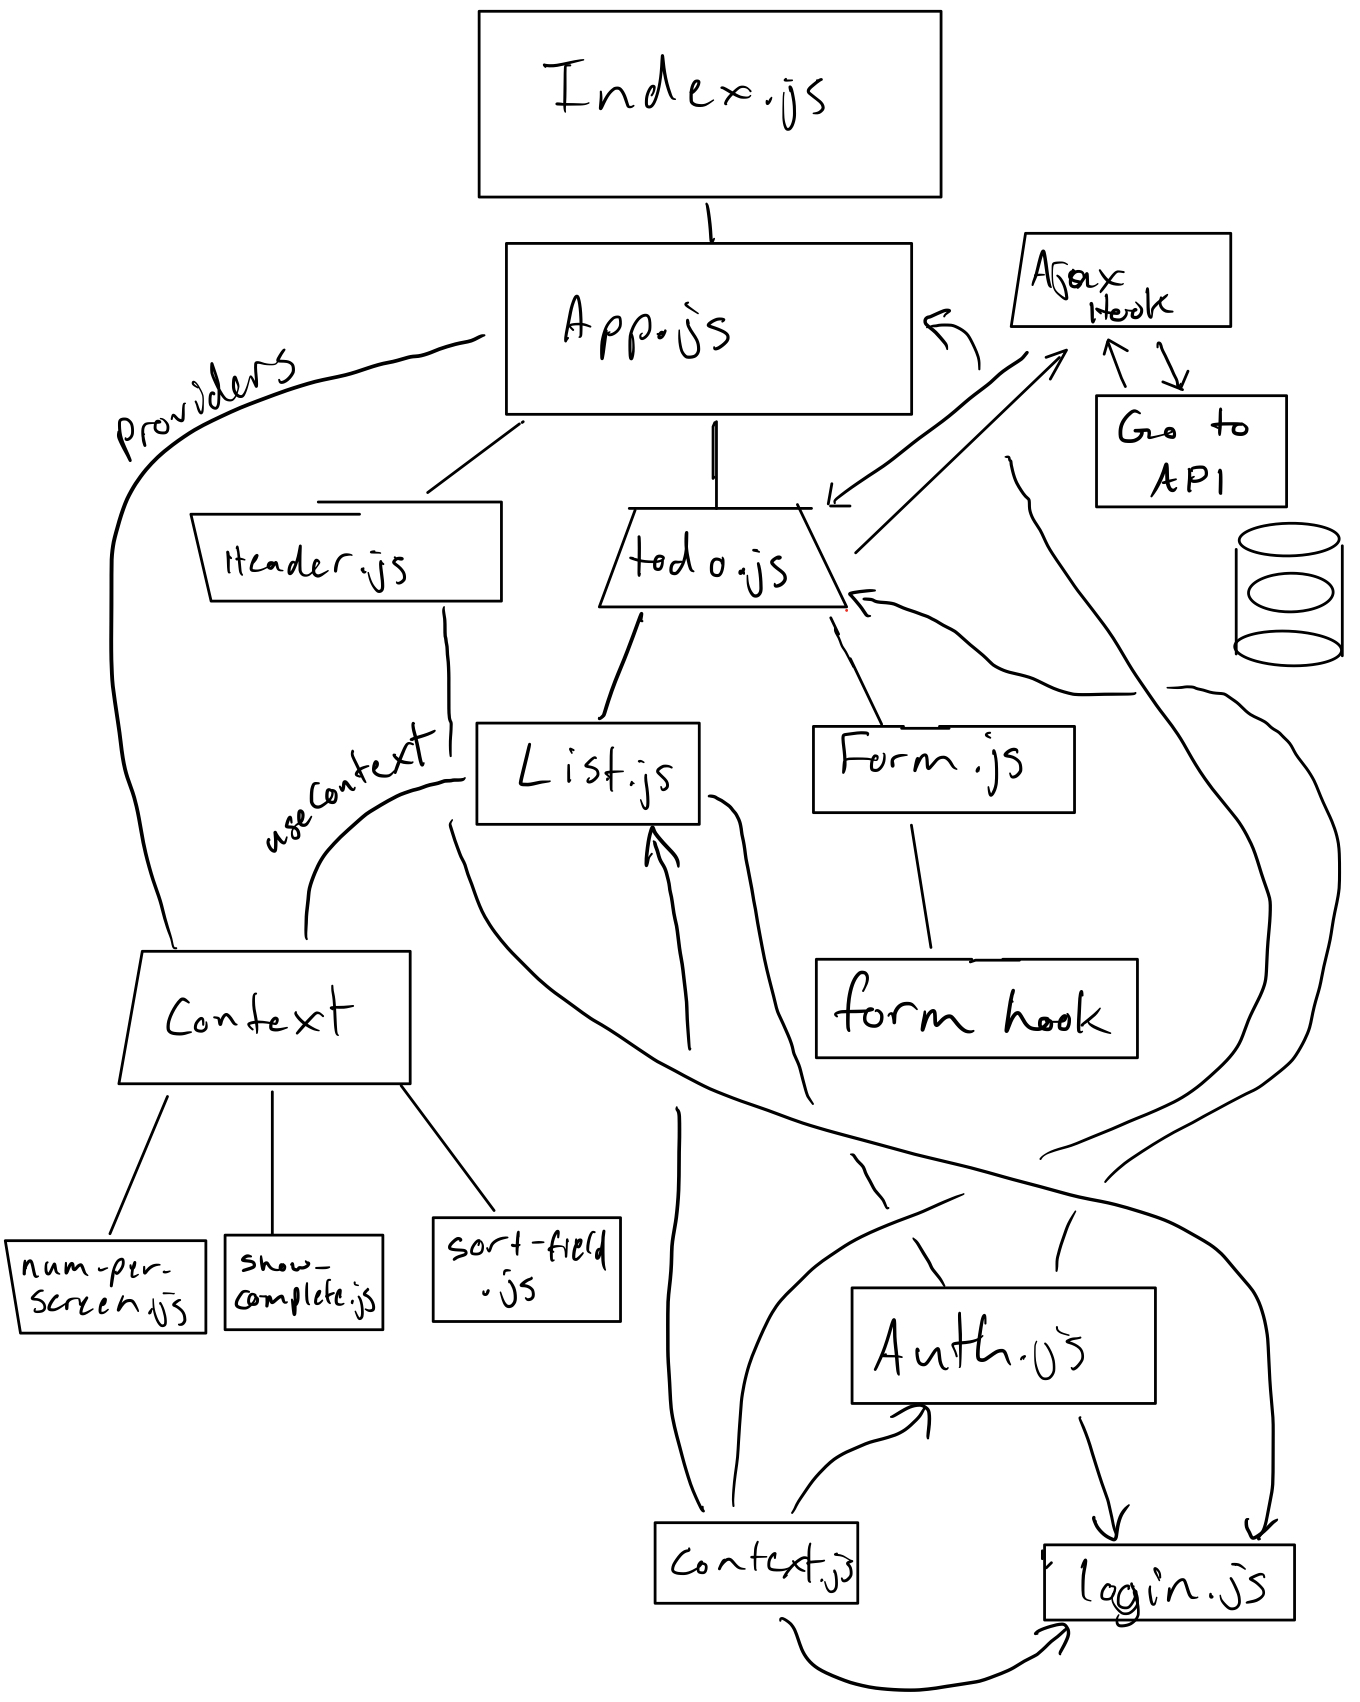 Index.js
App.js
Ajax
Hook
Providers
Go to
API
Header.js
todo.js
useContext
List.js
Form.js
Context
form hook
num-per-
screen.js
show-
complete.js
sort-field
.js
Auth.js
context.js
login.js